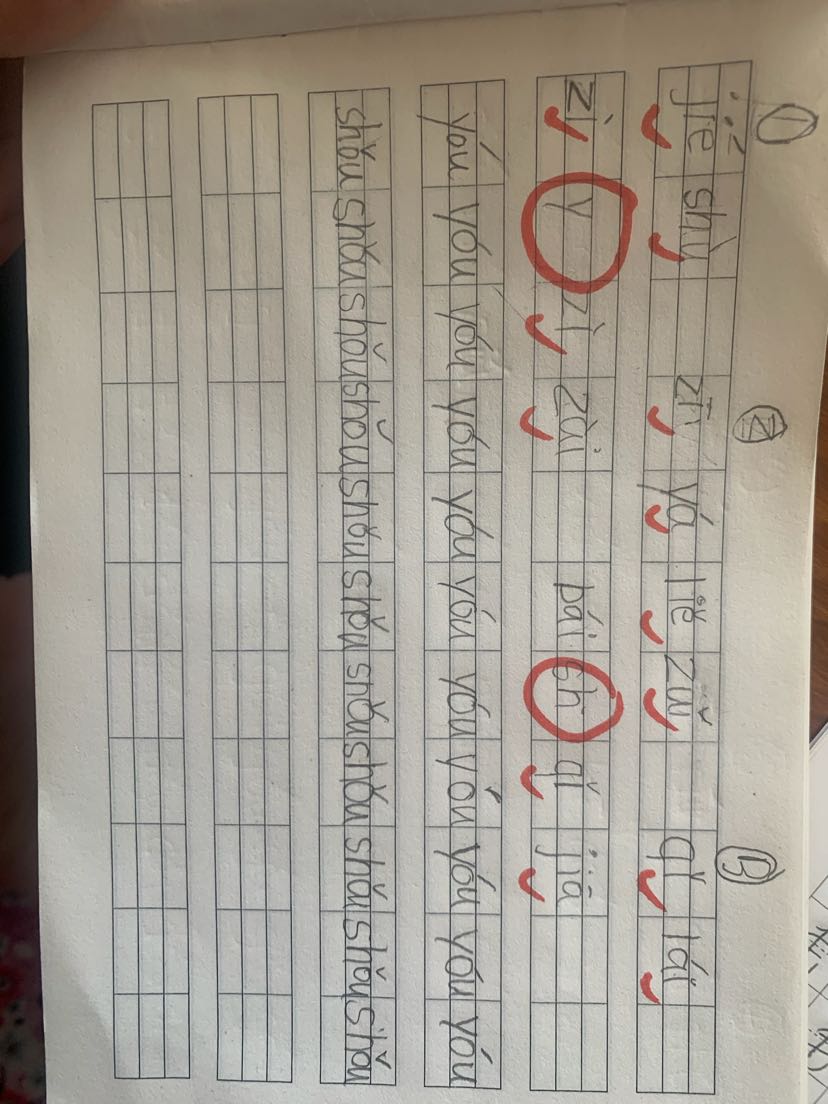 ① ② ③
jié shù zī yá liě zuǐ qǐ lái
zì y zì zài bái sh qǐ jiā
yóu yóu yóu yóu yóu yóu yóu yóu yóu yóu yóu
shǒu shǒu shǒu shǒu shǒu shǒu shǒu shǒu shǒu shǒu shǒu